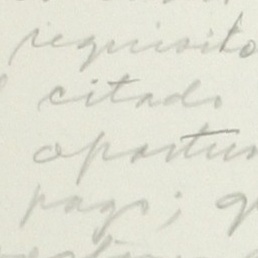 requisito
citado
oportun
pago; q